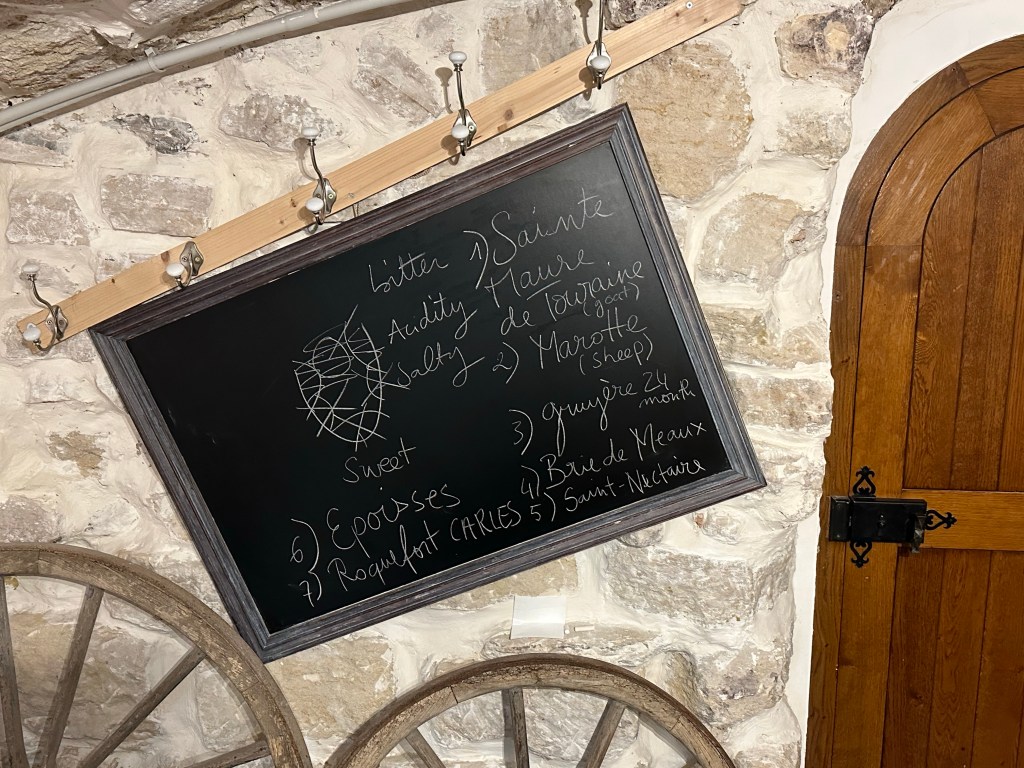 bitter
Acidity
Salty
Sweet
1) Sainte
Maure
de Touraine
(goat)
2) Marotte
(sheep)
3) gruyère 24
month
4) Brie de Meaux
5) Saint-Nectaire
6) Epoisses
7) Roquefort CARLES